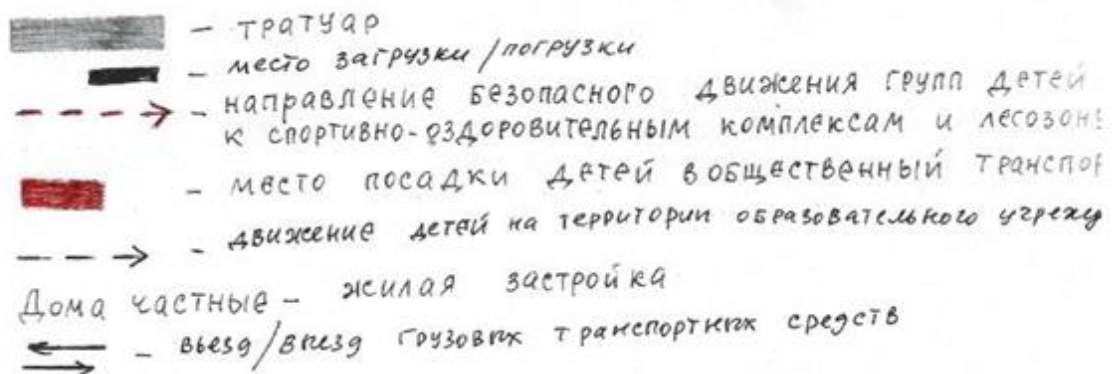 - тратуар
- место загрузки/погрузки
- направление безопасного движения групп детей
к спортивно-оздоровительным комплексам и лесозоне
- место посадки детей в общественный транспор
- движение детей на территории образовательного учрежд
Дома частные - жилая застройка
- вьезд/выезд грузовых транспортных средств